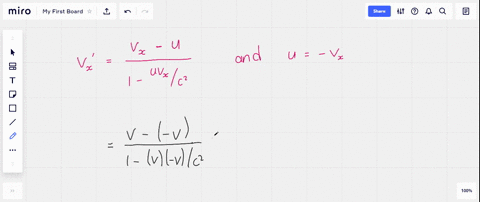 miro My First Board Share
Vx' = Vx - u / 1 - uVx/c² and u = -Vx
= V - (-V) / 1 - (V)(-V)/c²
100%